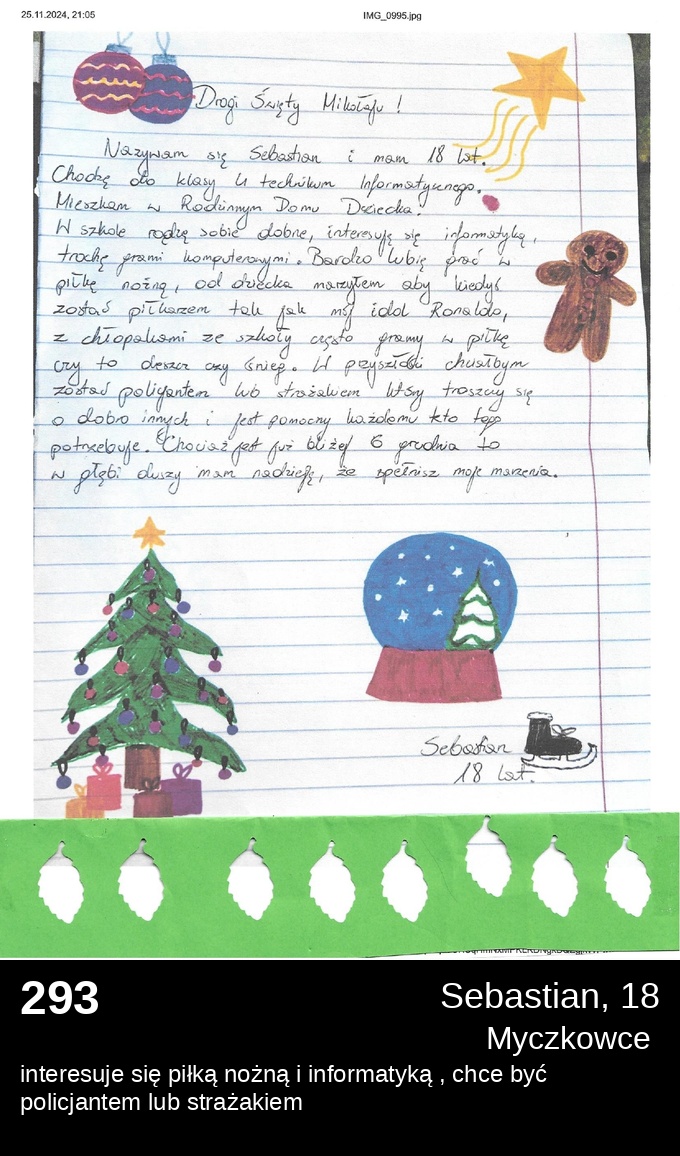 25.11.2024, 21:05
IMG_0995.jpg
Drogi Święty Mikołaju !
Nazywam się Sebastian i mam 18 lat.
Chodzę do klasy 4 technikum Informatycznego.
Mieszkam w Rodzinnym Domu Dziecka.
W szkole radzę sobie dobrze, interesuję się informatyką,
trochę grami komputerowymi. Bardzo lubię grać w
piłkę nożną, od dziecka marzyłem aby kiedyś
zostać piłkarzem tak jak mój idol Ronaldo,
z chłopakami ze szkoły często gramy w piłkę
czy to deszcz czy śnieg. W przyszłości chciałbym
zostać policjantem lub strażakiem który troszczy się
o dobro innych i jest pomocny każdemu kto tego
potrzebuje. Chociaż jest już bliżej 6 grudnia to
w głębi duszy mam nadzieję, że spełnisz moje marzenia.
Sebastian
18 lat.
293
Sebastian, 18
Myczkowce
interesuje się piłką nożną i informatyką , chce być
policjantem lub strażakiem